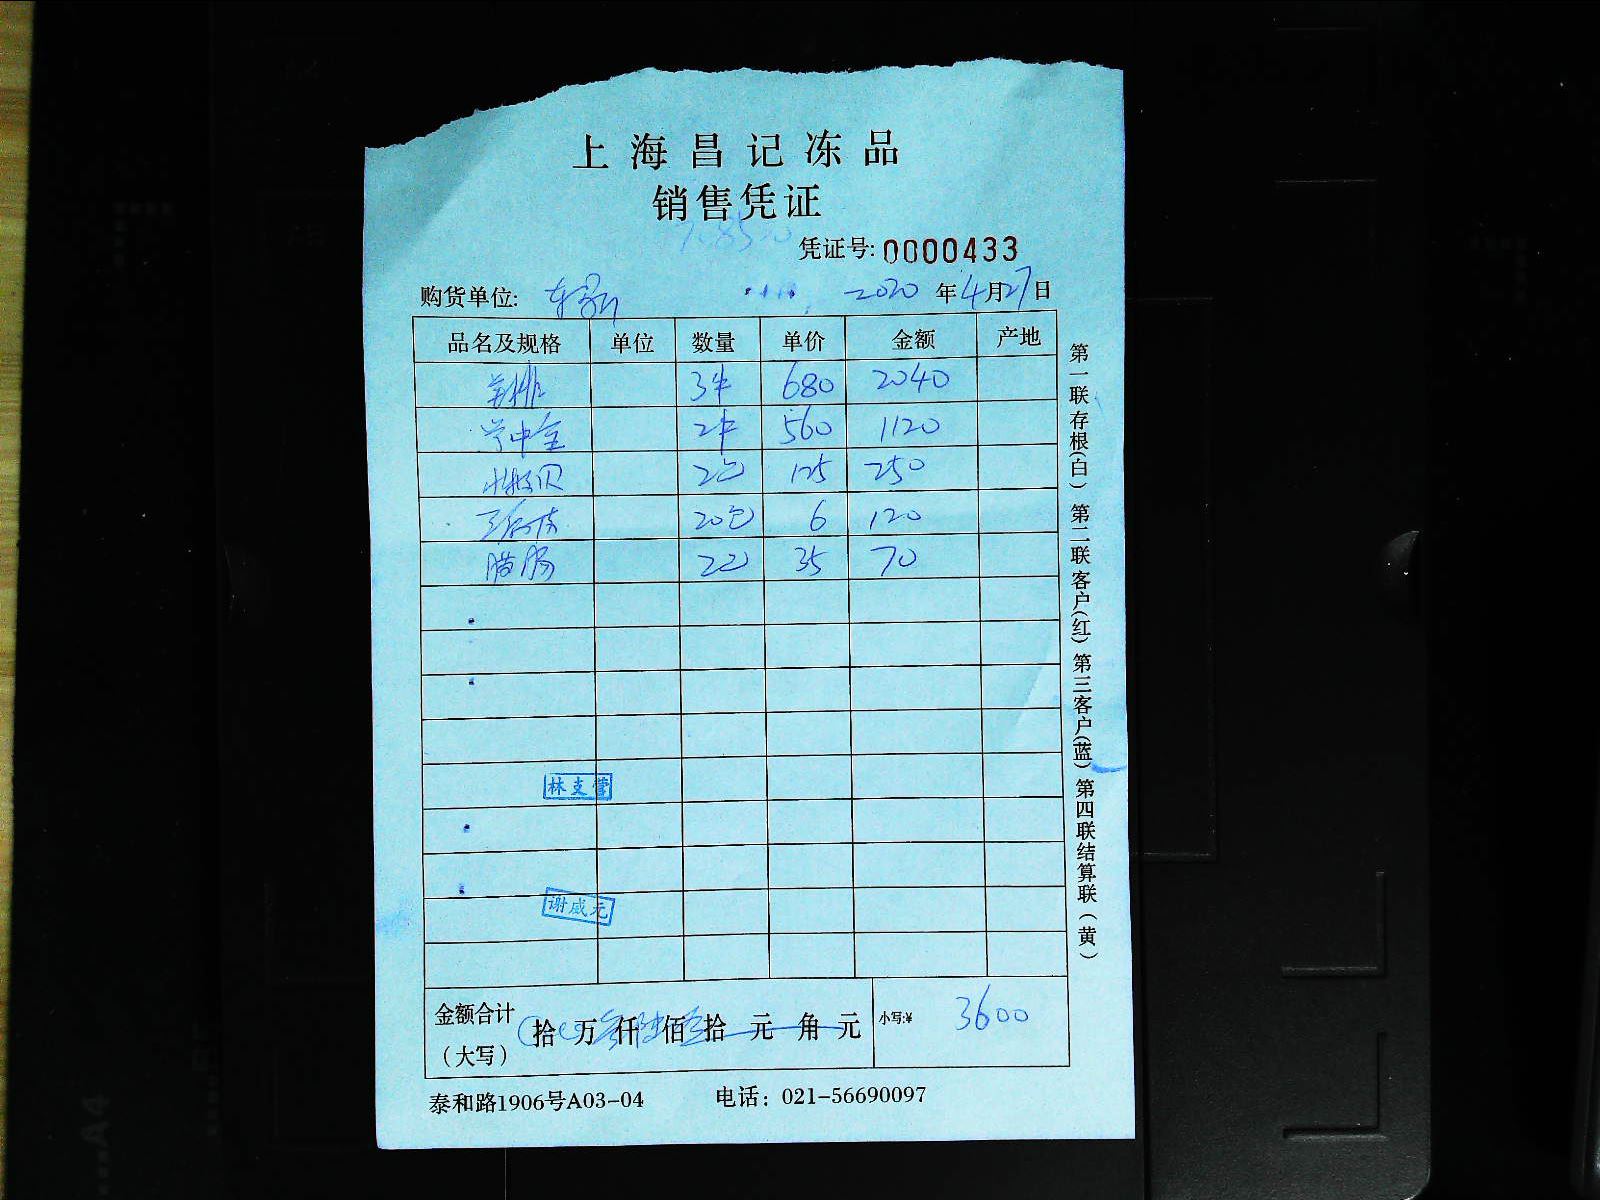 上海昌记冻品
销售凭证
凭证号: 0000433
购货单位: 2020年4月27日
品名及规格 单位 数量 单价 金额 产地
3件 680 2040
2件 560 1120
2包 125 250
20包 6 120
腊肠 2包 35 70
林支管
谢威元
金额合计（大写） 拾 万叁仟陆佰 拾 元 角 元 小写:¥ 3600
泰和路1906号A03-04 电话：021-56690097
第一联存根(白) 第二联客户(红) 第三客户(蓝) 第四联结算联(黄)